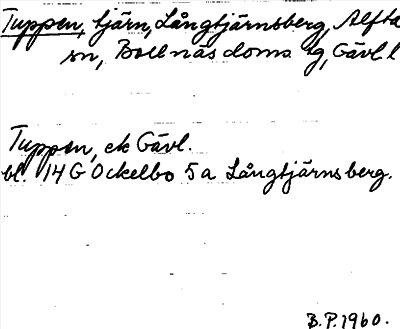 Tuppen, tjärn, Långtjärnsberg, Alfta
sn, Bollnäs doms lg, Gävl l
Tuppen, ek Gävl.
bl. 14 G Ockelbo 5 a Långtjärnsberg.
B.P. 1960.